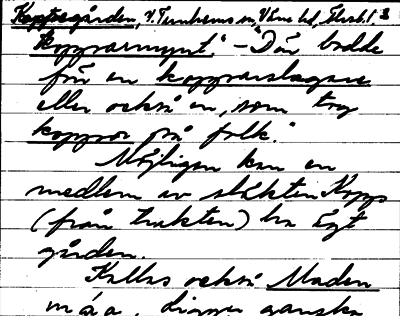 Koppsegården, V. Tunhems sn, Väne hd, Älvsb. l. 3
"Kopparmynt" – "Där bodde
förr en kopparslagare
eller också en, som tog
koppor på folk."
Möjligen kan en
medlem av släkten Kopps
(från trakten) ha ägt
gården.
Kallas också Maden
ligger ganska